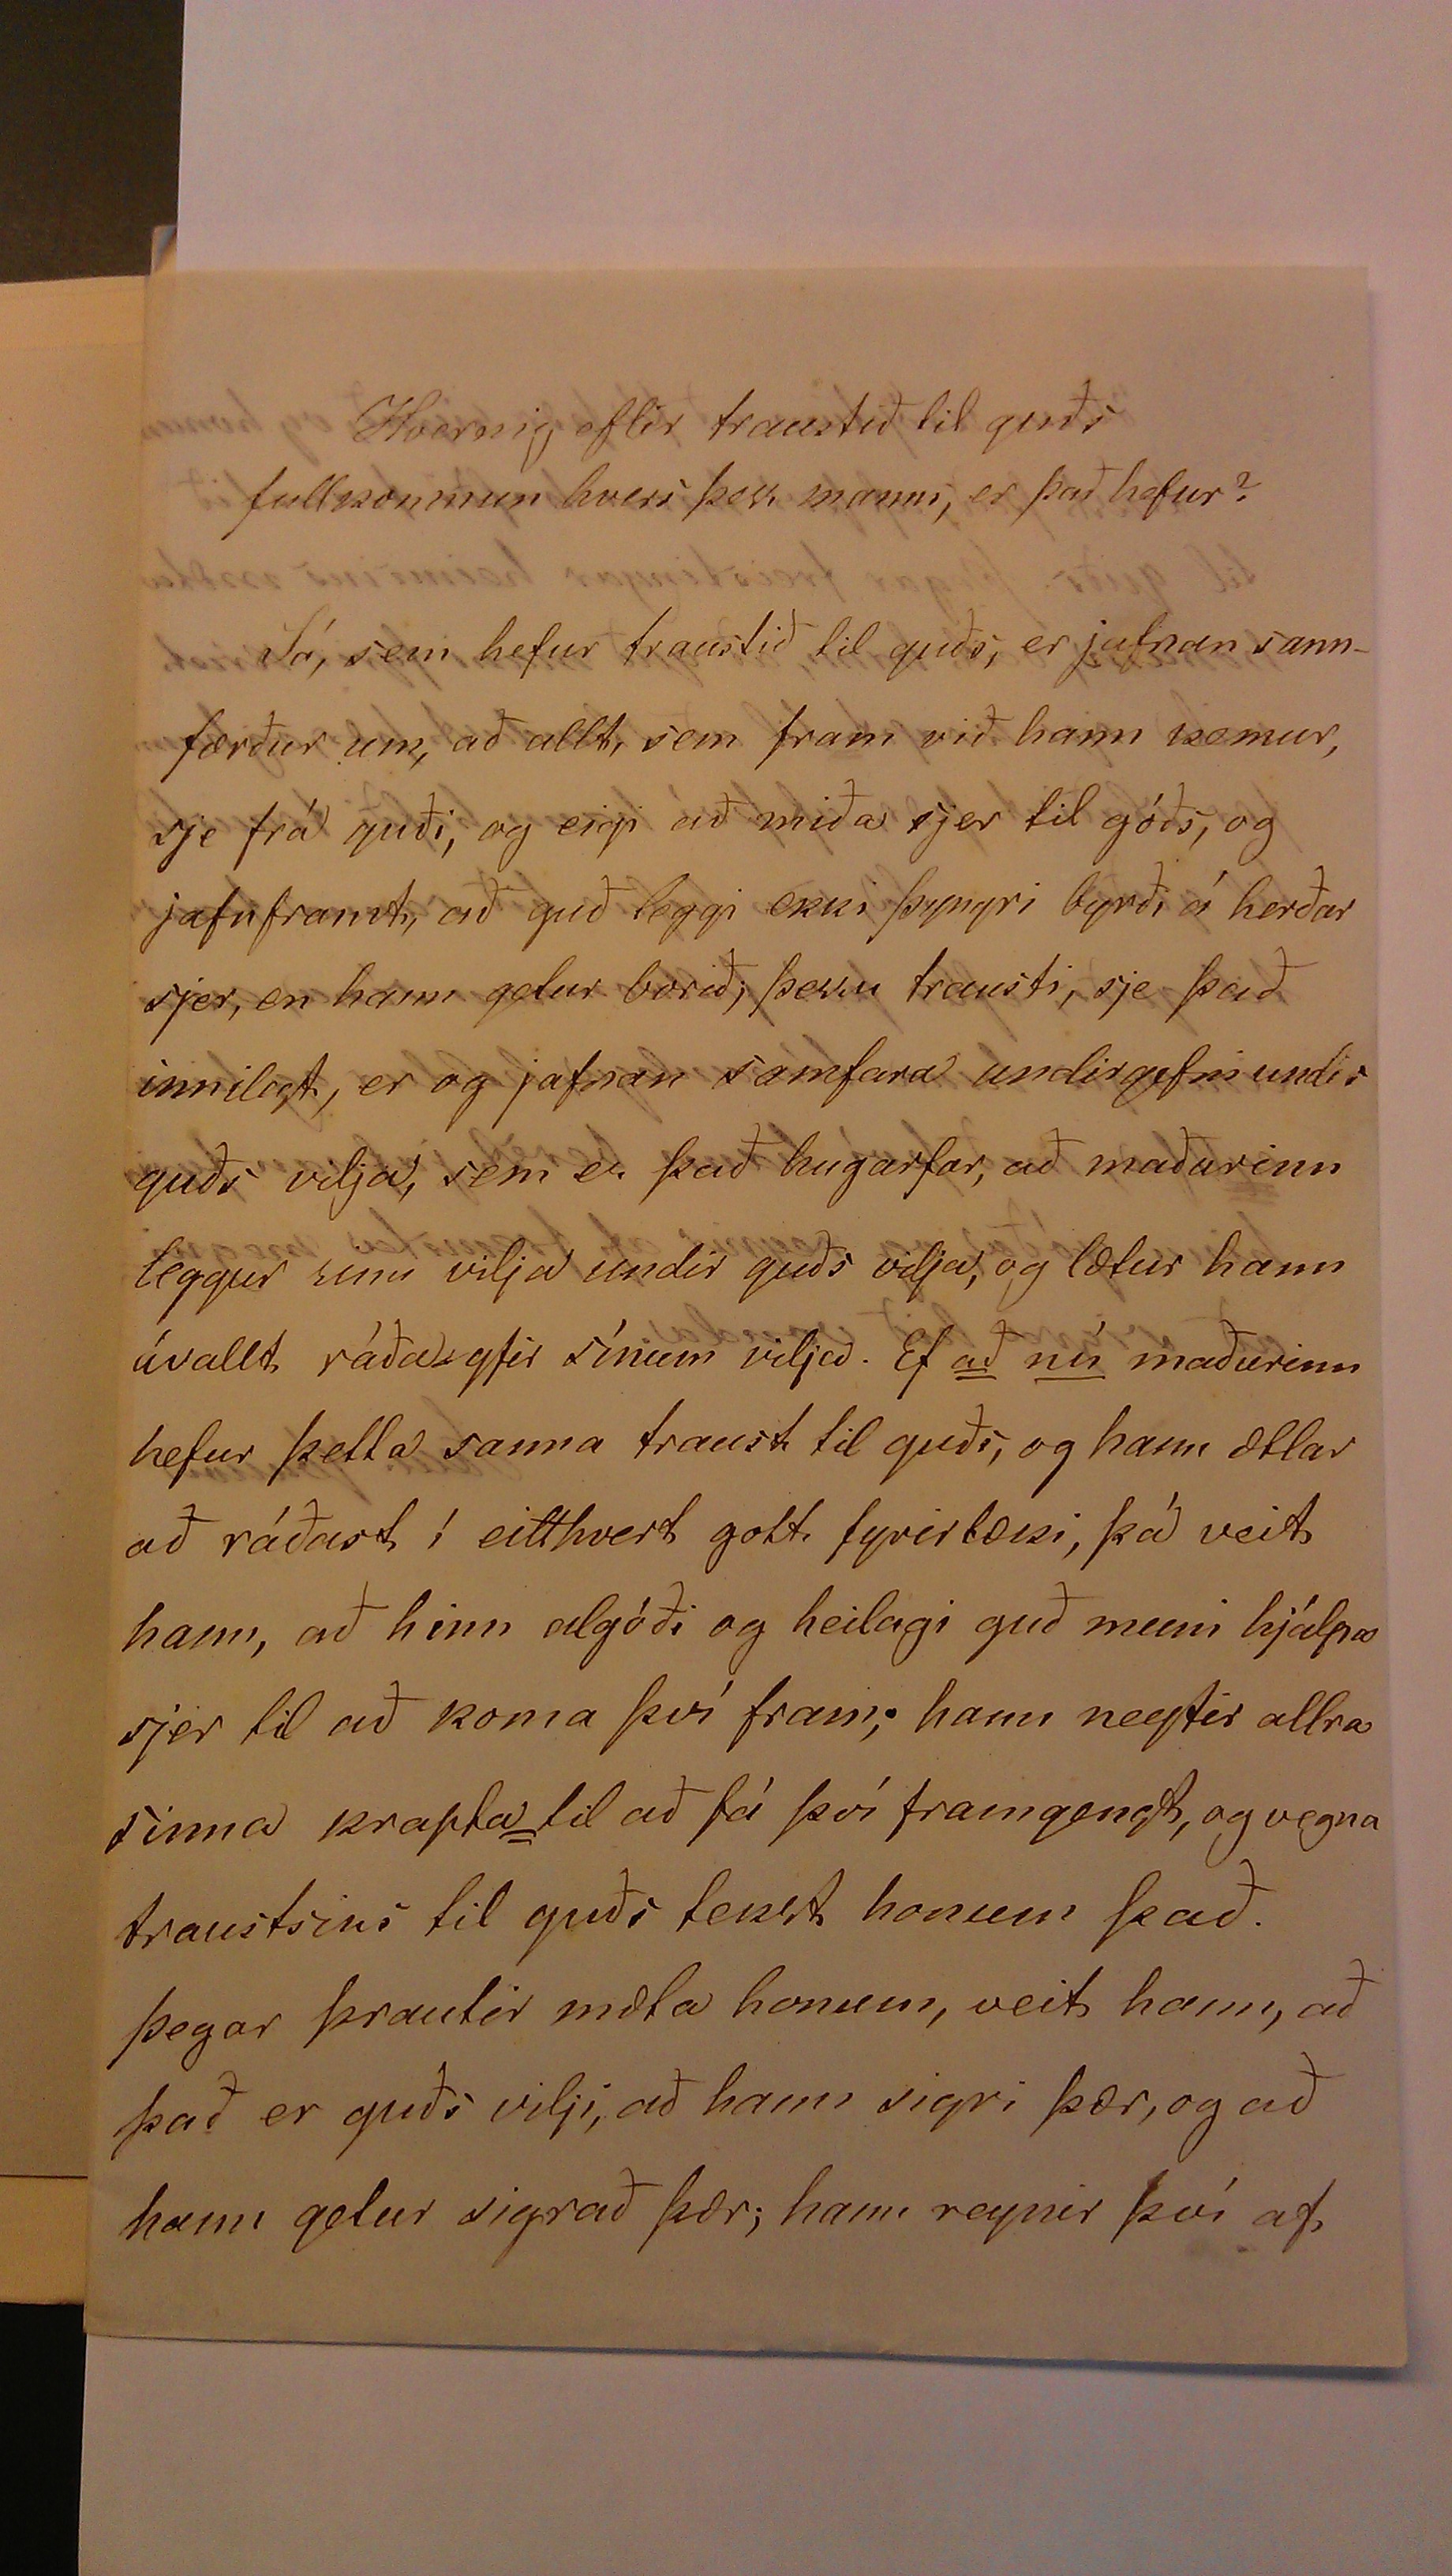 Hvernig eflir traustið til guðs
fullkomnun hvers þess manns, er það hefur?
Sá, sem hefur traustið til guðs, er jafnan sann-
færður um, að allt, sem fram við hann kemur,
sje frá guði, og eigi að miða sjer til góðs, og
jafnframt, að guð leggi ekki þyngri byrði á herðar
sjer, en hann getur borið; þessu trausti, sje það
innilegt, er og jafnan samfara undirgefni undir
guðs vilja, sem er það hugarfar, að maðurinn
leggur sinn vilja undir guðs vilja, og lætur hann
ávallt ráða yfir sínum vilja. Ef að nú maðurinn
hefur þetta sanna traust til guðs, og hann ætlar
að ráðast í eitthvert gott fyrirtæki, þá veit
hann, að hinn algóði og heilagi guð muni hjálpa
sjer til að koma því fram; hann neytir allra
sinna krapta til að fá því framgengt, og vegna
traustsins til guðs tekst honum það.
Þegar þrautir mæta honum, veit hann, að
það er guðs vilji, að hann sigri þær, og að
hann getur sigrað þær; hann reynir því af